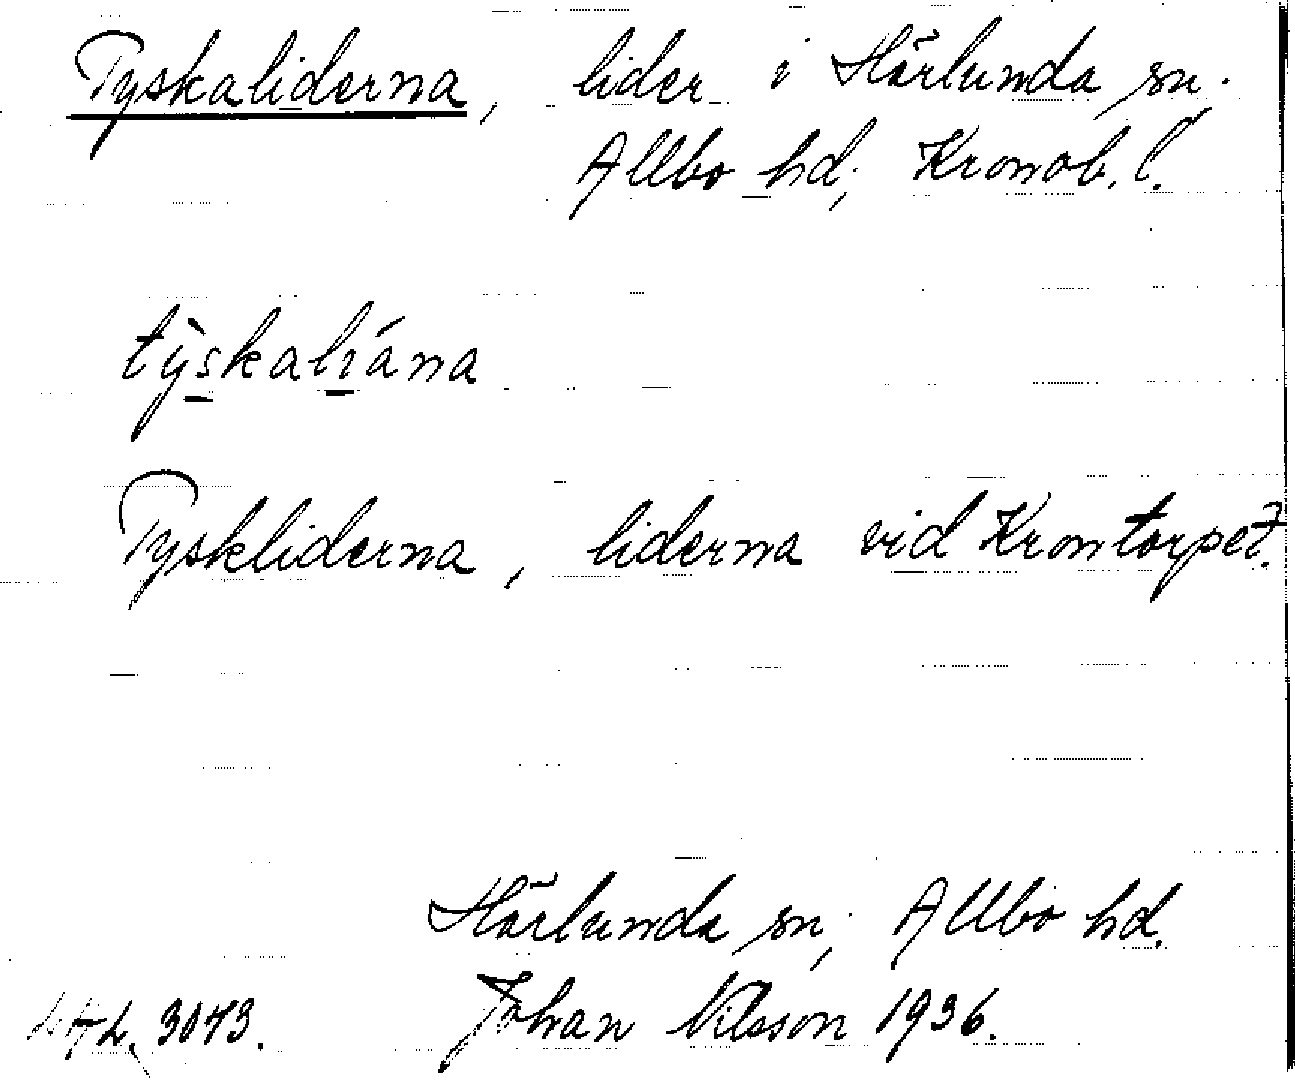 Tyskaliderna, lider i Härlunda sn.
Allbo hd; Kronob. l.
tỳskalıána
Tyskliderna, liderna vid Krontorpet.
Härlunda sn; Allbo hd.
3073. Johan Nilsson 1936.